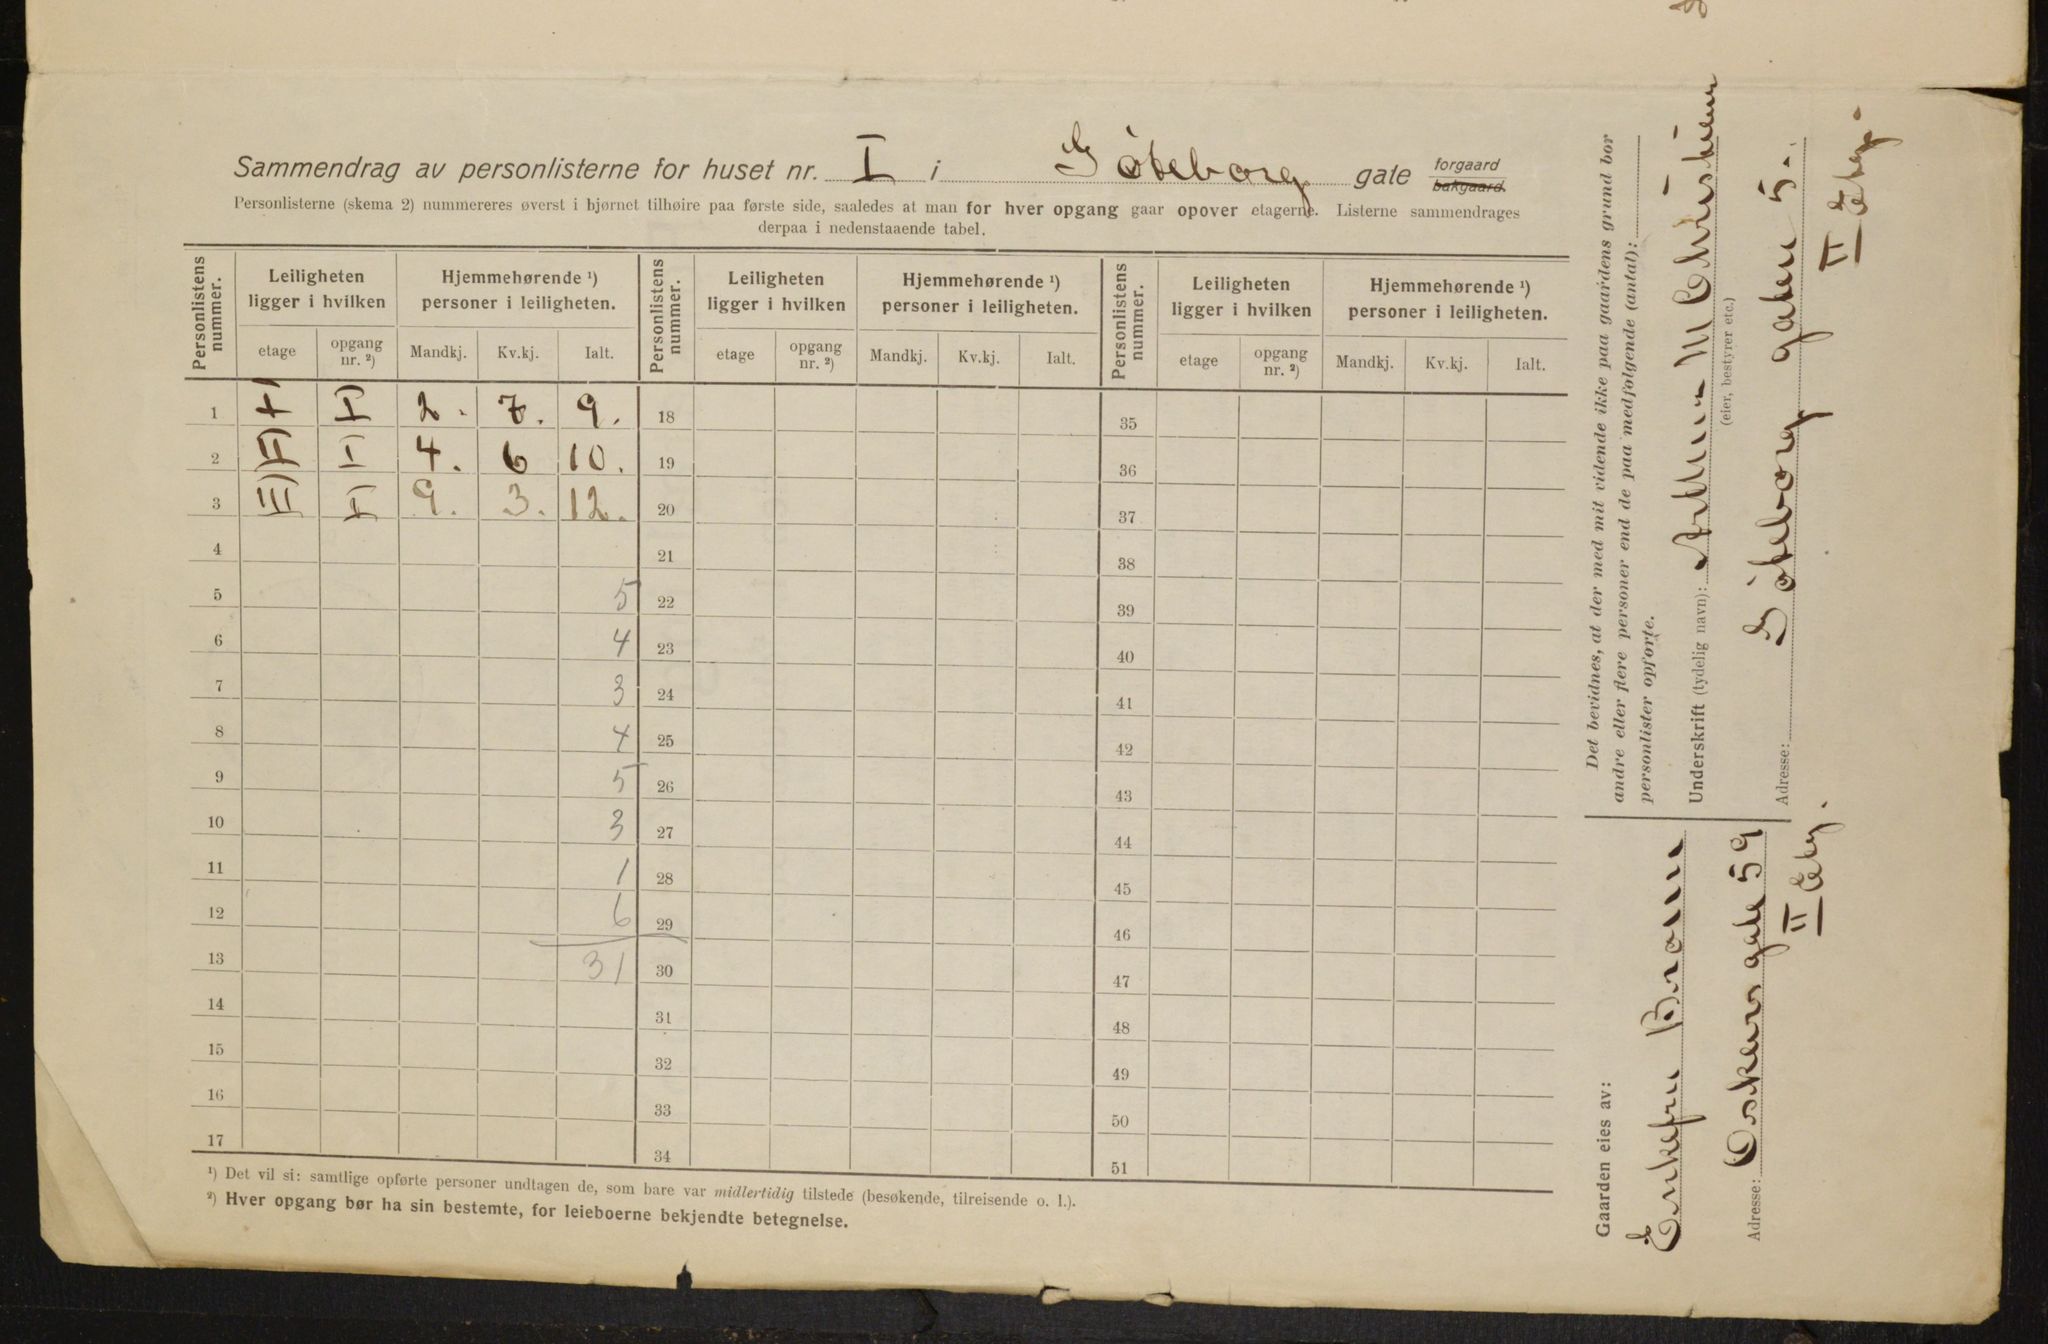 Sammendrag av personlisterne for huset nr. I i Göteborg gate forgaard bakgaard.
Personlisterne (skema 2) nummereres øverst i hjørnet tilhøire paa første side, saaledes at man for hver opgang gaar opover etagerne. Listerne sammendrages
derpaa i nedenstaaende tabel.
Personlistens nummer. Leiligheten ligger i hvilken Hjemmehørende ¹) personer i leiligheten. Personlistens nummer. Leiligheten ligger i hvilken Hjemmehørende ¹) personer i leiligheten. Personlistens nummer. Leiligheten ligger i hvilken Hjemmehørende ¹) personer i leiligheten.
etage opgang nr. ²) Mandkj. Kv.kj. Ialt. etage opgang nr. ²) Mandkj. Kv.kj. Ialt. etage opgang nr. ²) Mandkj. Kv.kj. Ialt.
1 I) I) 2. 7. 9. 18 35
2 II) I) 4. 6 10. 19 36
3 III) I) 9. 3. 12. 20 37
4 21 38
5 5 22 39
6 4 23 40
7 3 24 41
8 4 25 42
9 5 26 43
10 3 27 44
11 1 28 45
12 6 29 46
13 31 30 47
14 31 48
15 32 49
16 33 50
17 34 51
¹) Det vil si: samtlige opførte personer undtagen de, som bare var midlertidig tilstede (besøkende, tilreisende o. l.).
²) Hver opgang bør ha sin bestemte, for leieboerne bekjendte betegnelse.
Det bevidnes, at der med mit vidende ikke paa gaardens grund bor
andre eller flere personer end de paa medfølgende (antal):
personlister opførte.
Underskrift (tydelig navn):
(eier, bestyrer etc.)
Adresse: Göteborg gaten 5.
II Etg.
Gaarden eies av:
Enkefru Braun
Adresse: Oskars gate 59
II Etg.